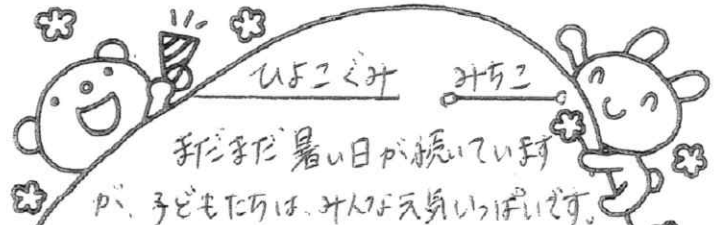 ひよこぐみ みちこ
まだまだ暑い日が続いています
が、子どもたちは、みんな元気いっぱいです。